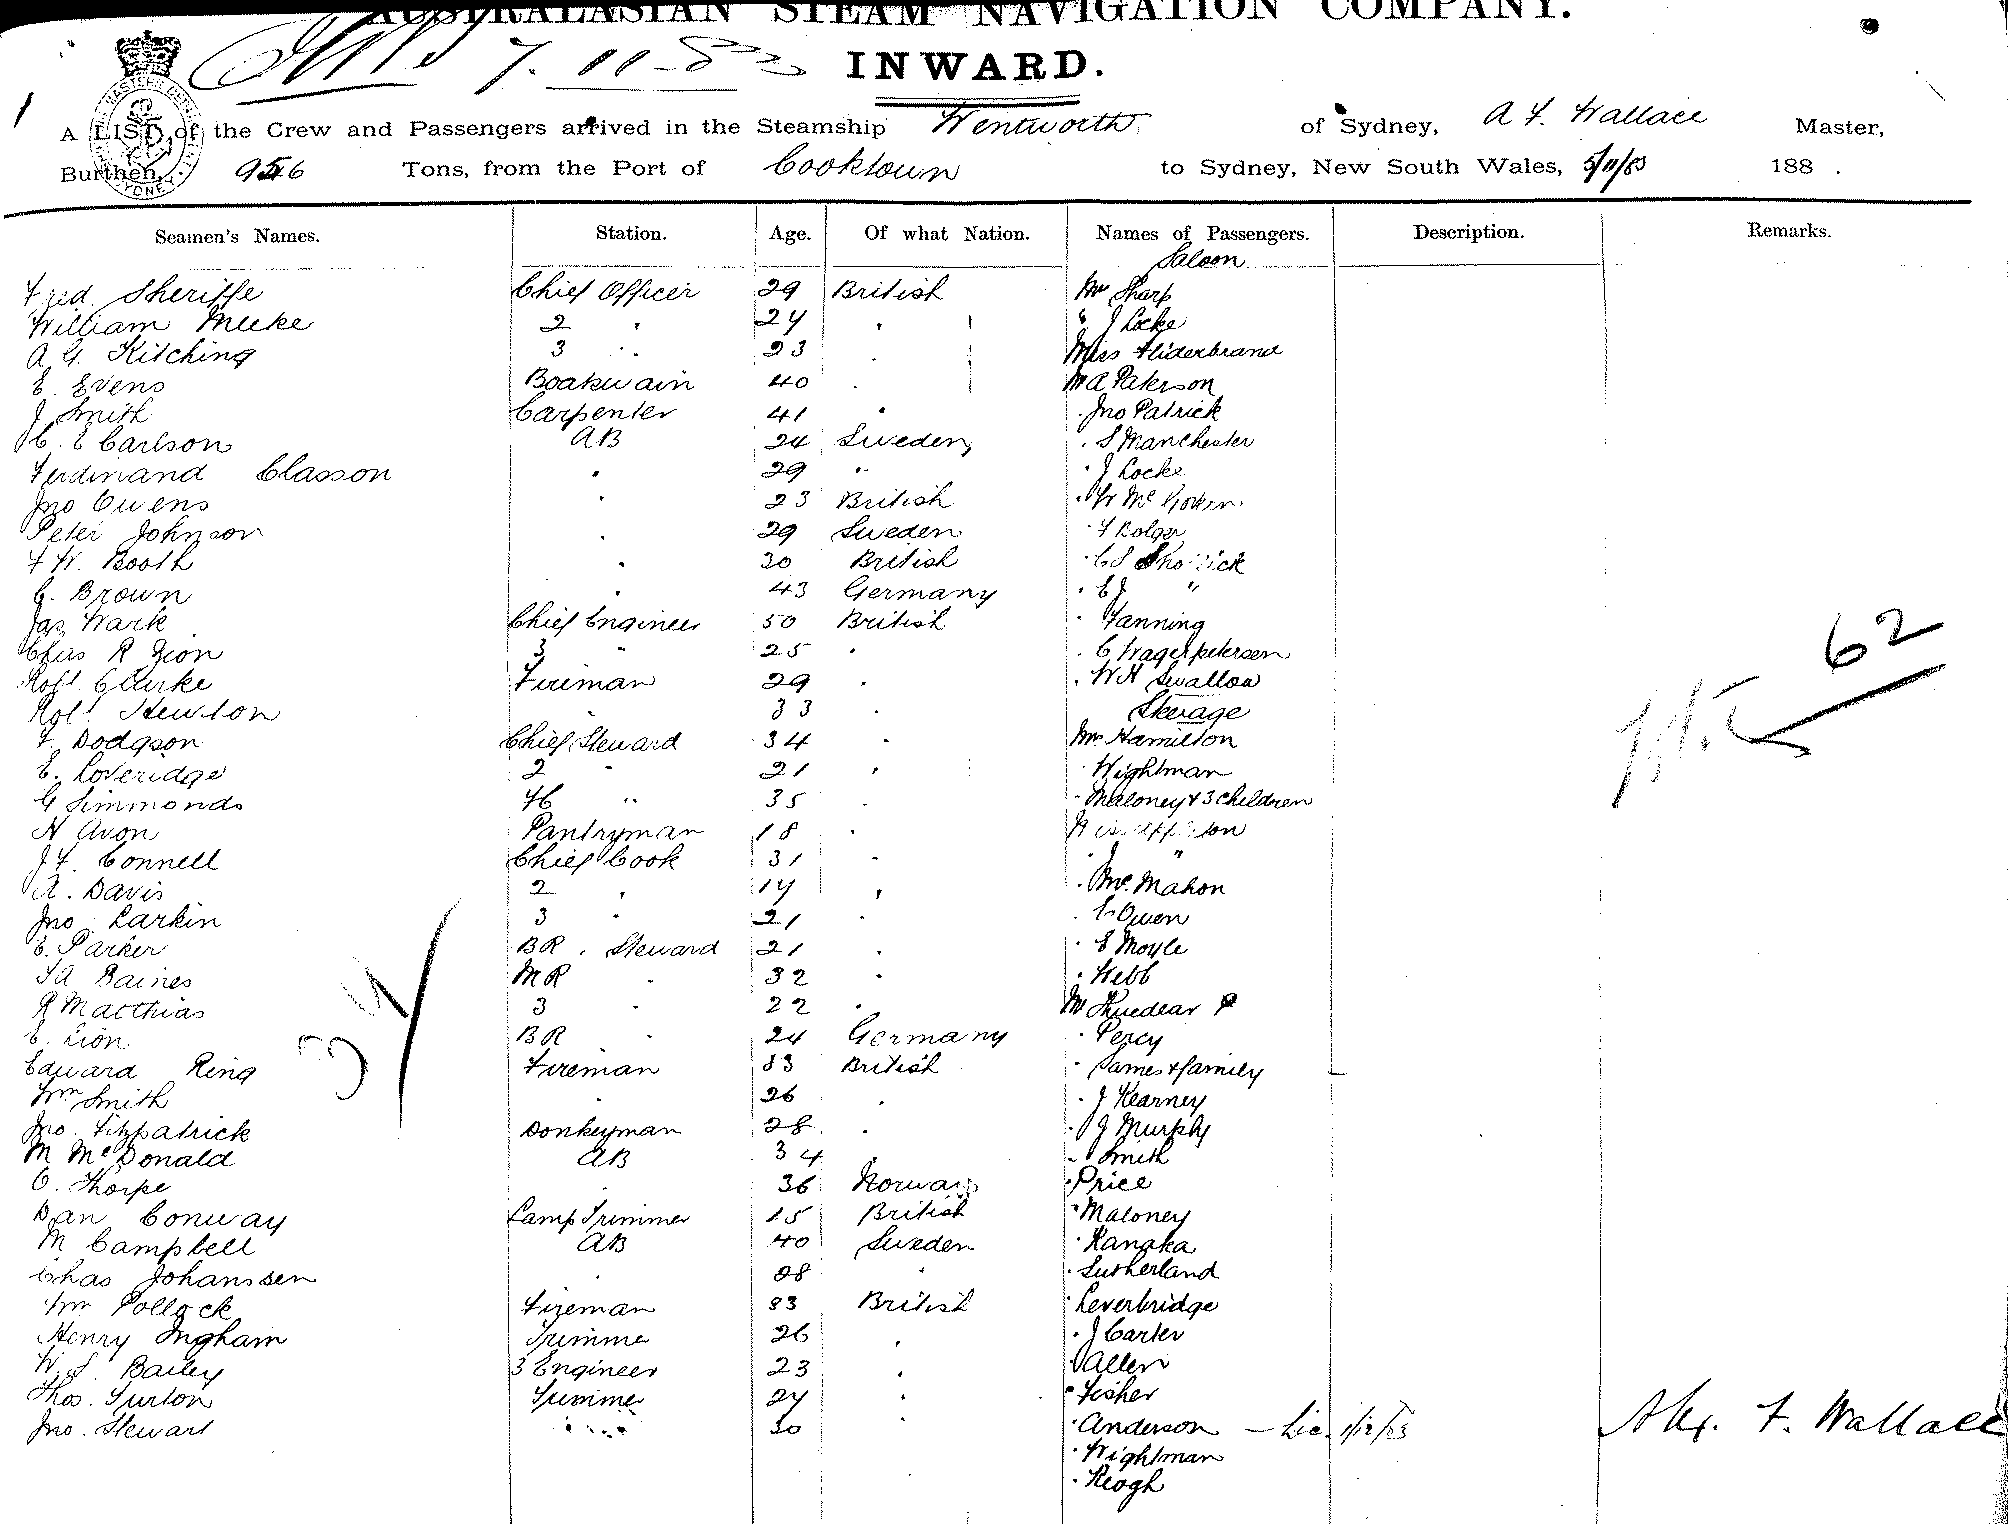 AUSTRALASIAN STEAM NAVIGATION COMPANY.
7. 11 - 83 INWARD.
A LIST of the Crew and Passengers arrived in the Steamship Wentworth of Sydney, A F. Wallace Master,
Burthen, Tons, from the Port of Cooktown to Sydney, New South Wales, 5/11/83 188 .
Seamen's Names. Station. Age. Of what Nation. Names of Passengers. Description. Remarks.
Saloon
Fred Sheriffe Chief Officer 29 British Mr Sharp
William Meeke 2 " 24 " " J Locke
A. G. Kitching 3 " 23 " Miss Hiderbrand
E. Evens Boatswain 40 " Mr A Paterson
J Smith Carpenter 41 " " Jno Patrick
C. E Carlson AB 24 Sweden " S Manchester
Ferdinand Classon " 29 " " J Locke
Jno Owens " 23 British " W Mc
Peter Johnson " 29 Sweden " F Bolger
F W. Booth " 30 British " C S
C. Brown " 43 Germany " E J "
Jas Wark Chief Engineer 50 British " Fanning
Chas R Zion 3 " 25 " " C Wagerpetersen
Robt. Clarke Fireman 29 " " W H Swallow
Robt. Hewton " 33 " Steerage
F. Dodgson Chief Steward 34 " Mrs Hamilton
E. Loveridge 2 " 21 " " Wightman
G Simmonds " 35 " " Maloney & 3 children
H Avon Pantryman 18 "
J F. Connell Chief Cook 31 " " "
A. Davis 2 " 17 " " Mc Mahon
Jno Larkin 3 " 21 " " C Owen
E. Parker BR. Steward 21 " " E Moyle
T A Baines MR " 32 " " Webb
R Matthias 3 " 22 " Mr
E. Lion BR " 24 Germany " Percy
Edward Ring Fireman 33 British " James & family
Wm Smith " 26 " " J Kearney
Jno. Fitzpatrick Donkeyman 28 " " J Murphy
M McDonald AB 34 " " Smith
O. Thorpe " 36 Norway " Price
Dan Conway Lamp Trimmer 15 British " Maloney
M Campbell AB 40 Sweden " Kanaka
Chas Johanssen " 28 " " Sutherland
Wm Pollock Fireman 33 British " Leverbridge
Henry Ingham Trimmer 26 " " J Carter
W. S. Bailey 3 Engineer 23 " " Allen
Thos. Turton Trimmer 27 " " Fisher
Jno. Stewart " 30 " " Anderson
" Wightman
" Keogh
62
Alex. F. Wallace